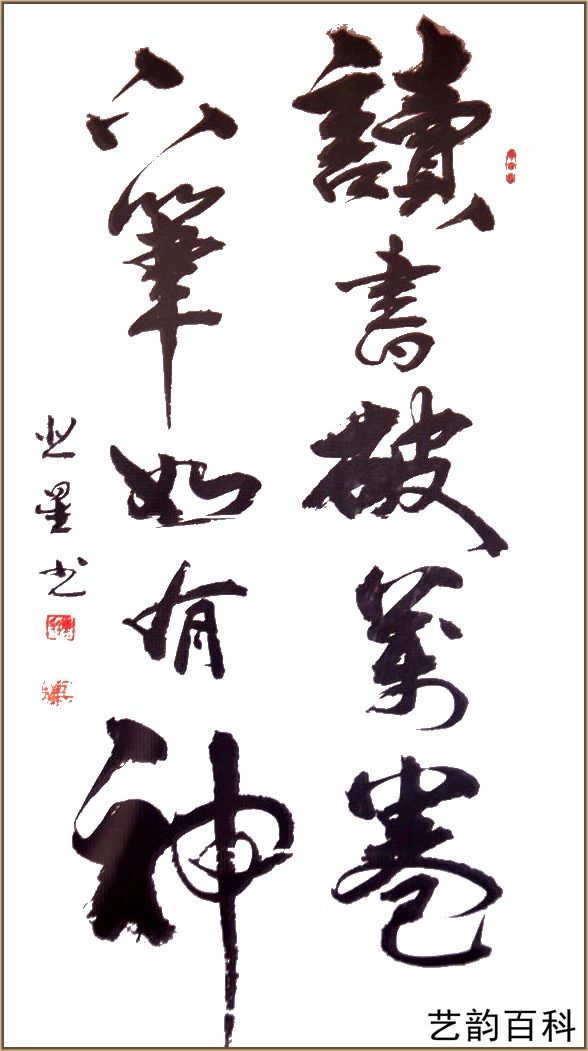 讀書破萬卷
下筆如有神
星书
艺韵百科